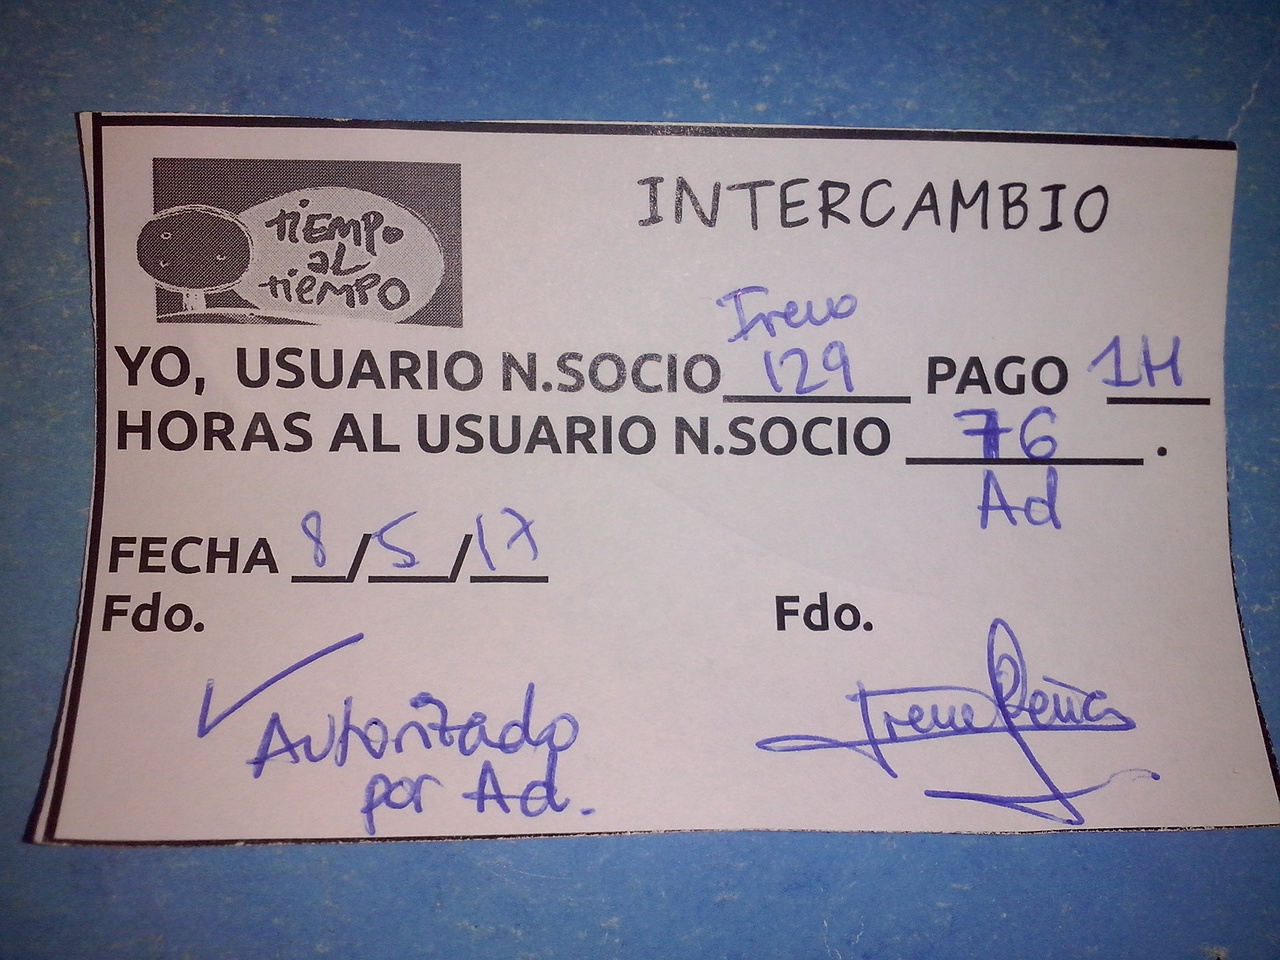 tiEMPo
aL
tiEMPO
INTERCAMBIO
Irene
YO, USUARIO N.SOCIO 129 PAGO 1H
HORAS AL USUARIO N.SOCIO 76.
Ad
FECHA 8/5/17
Fdo. Fdo.
Autorizado
por Ad.
Irene Peña